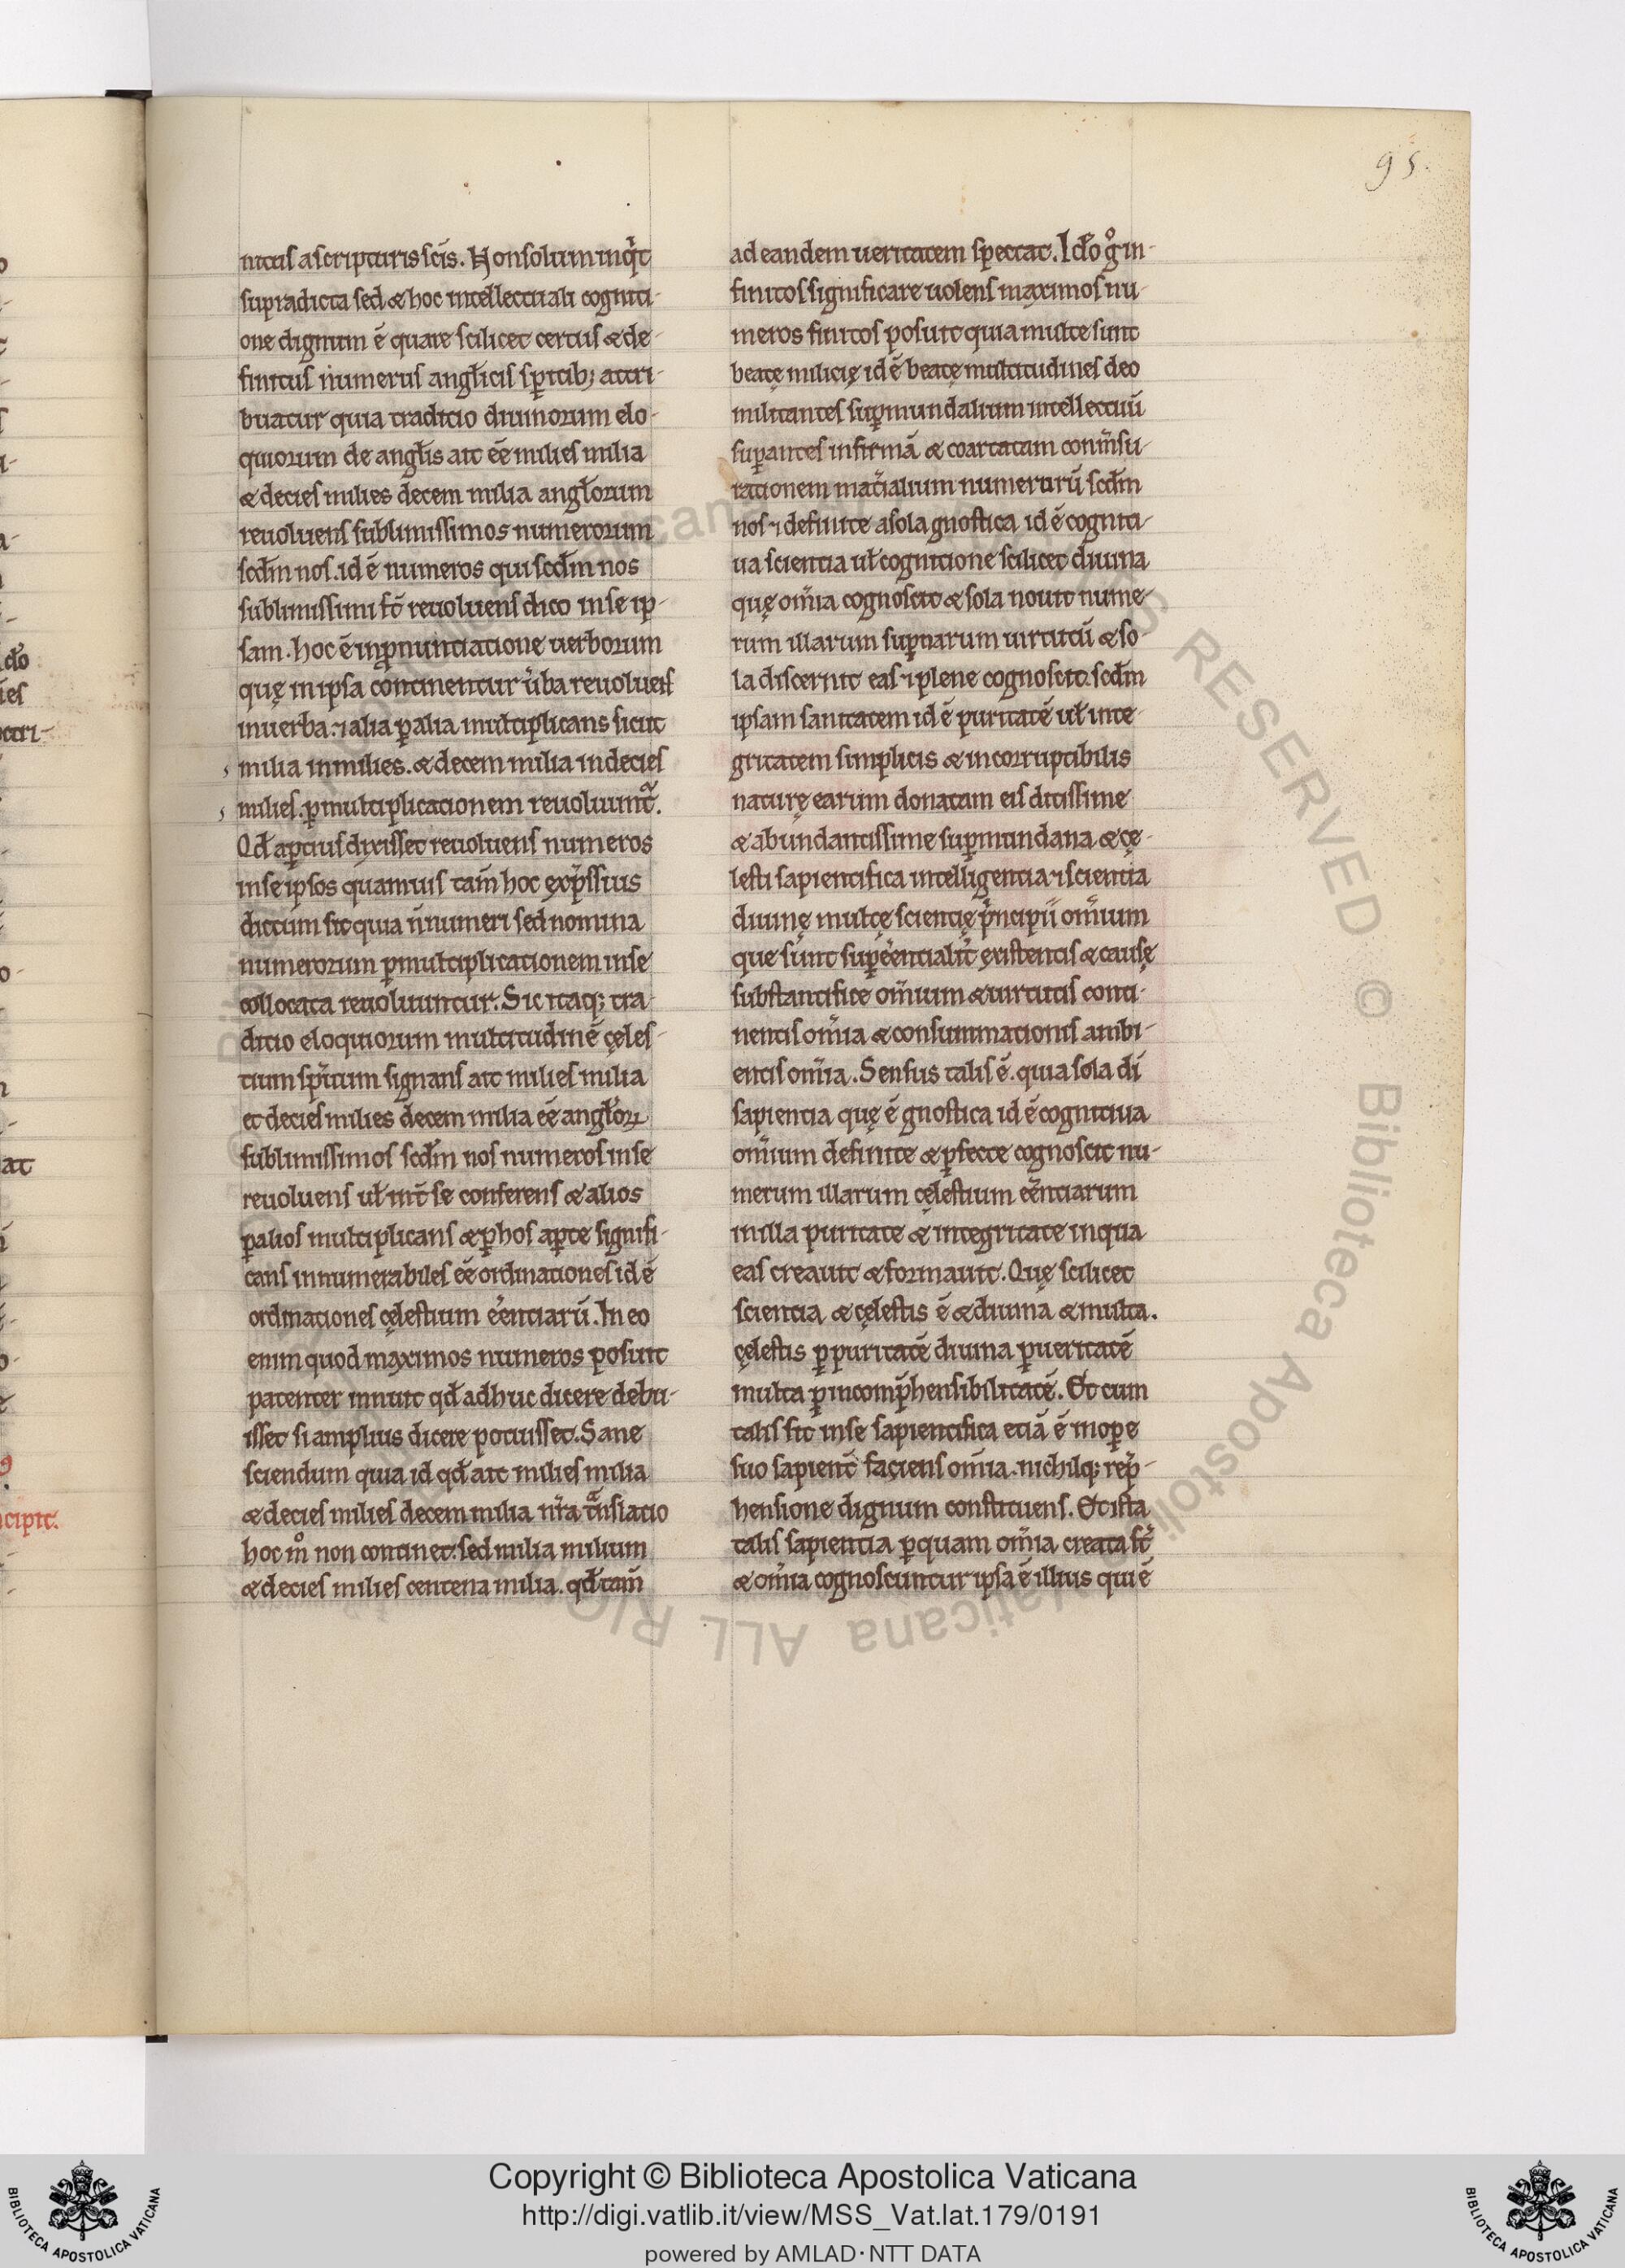 95.
nitus a scripturis sc̄is. Non solum inqͥt
supradicta sed & hoc intellectuali cogniti-
one dignum ē quare scilicet certus & de-
finitus numerus angl̄icis sp̄itib; attri-
buatur quia traditio diuinorum elo-
quiorum de angl̄is ait ēē milies milia
& decies milies decem milia angl̄orum
reuoluens sublimissimos numerorum
scd̄m nos. id ē numeros qui scd̄m nos
sublimissimi st̄ reuoluens dico in se ip-
sam. hoc ē in ꝓnuntiatione uerborum
quę in ipsa continentur u̾ba reuoluens
in uerba. ⁊ alia ꝑ alia multiplicans sicut
milia in milies. & decem milia in decies
milies. ꝑ multiplicationem reuoluunt᷑.
Qd̄ aꝑtius dixisset reuoluens numeros
in se ipsos quamuis tam̄ hoc exp̄ssius
dictum sit quia n̄ numeri sed nomina
numerorum ꝑ multiplicationem in se
collocata reuoluuntur. Sic itaq; tra-
ditio eloquiorum multitudinē cęles-
tium sp̄ituum signans ait milies milia
et decies milies decem milia ēē angl̄oꝝ
sublimissimos scd̄m nos numeros in se
reuoluens ul̄ int̄ se conferens & alios
ꝑ alios multiplicans & ꝑ hos aꝑte signifi-
cans innumerabiles ēē ordinationes id ē
ordinationes cęlestium ēentiarū. In eo
enim quod maximos numeros posuit
patenter innuit qd̄ adhuc dicere debu-
isset si amplius dicere potuisset. Sane
sciendum quia id qd̄ ait milies milia
& decies milies decem milia nr̄a tᷓnslatio
hoc m̊ non continet. sed milia milium
& decies milies centena milia. qd̄ tam̄
ad eandem ueritatem spectat. Id̄o g̊ in-
finitos significare uolens maximos nu-
meros finitos posuit quia multe sunt
beatę milicię id ē beatę multitudines deo
militantes suꝑmundalium intellectuū
suꝑantes infirmā & coartatam com̄nsu-
rationem mat̄ialium numerorū scd̄m
nos ⁊ definite a sola gnostica id ē cogniti-
ua scientia ul̄ cognitione scilicet diuina
quę om̄ia cognoscit & sola nouit nume-
rum illarum suꝑnarum uirtutū & so-
la discernit eas ⁊ plene cognoscit. scd̄m
ipsam sanitatem id ē puritatē ul̄ inte-
gritatem simplicis & incorruptibilis
naturę earum donatam eis ditissime
& abundantissime suꝑmundana & cę-
lesti sapientifica intelligentia ⁊ scientia
diuinę multę scientię pͥncipii om̄ium
que sunt suꝑēentialit̄ existentis & causę
substantifice om̄ium & uirtutis conti-
nentis om̄ia & consummationis ambi-
entis om̄ia. Sensus talis ē. quia sola dī
sapientia quę ē gnostica id ē cognitiua
om̄ium definite & ꝑfecte cognoscit nu-
merum illarum cęlestium ēentiarum
in illa puritate & integritate in qua
eas creauit & formauit. Quę scilicet
scientia & cęlestis ē & diuina & multa.
cęlestis ꝓꝑ puritatē diuina ꝓꝑ ueritatē
multa ꝓꝑ incomp̄hensibilitatē. Et cum
talis sit in se sapientifica etiā ē in oꝑe
suo sapient̄ faciens om̄ia. nichilq; rep̄-
hensione dignum constituens. Et ista
talis sapientia ꝑ quam om̄ia creata st̄
& om̄ia cognoscuntur ipsa ē illius qui ē
Copyright © Biblioteca Apostolica Vaticana
http://digi.vatlib.it/view/MSS_Vat.lat.179/0191
powered by AMLAD·NTT DATA
BIBLIOTECA APOSTOLICA VATICANA
BIBLIOTECA APOSTOLICA VATICANA